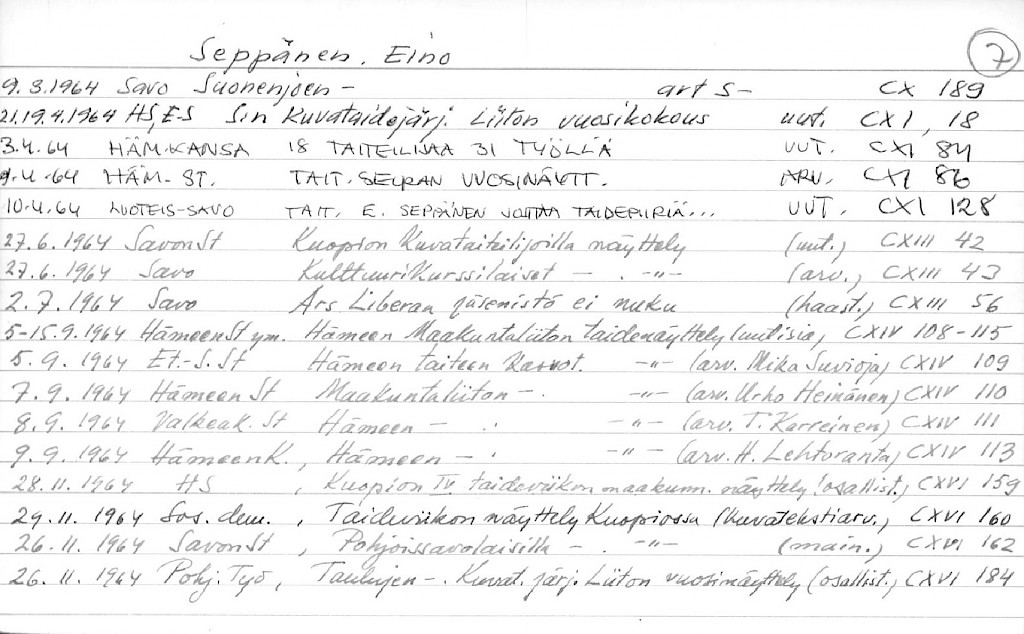 Seppänen, Eino 7
9.3.1964 Savo Suonenjoen - art s- CX 189
21.19.4.1964 HS, E-S S:n Kuvataidejärj. Liiton vuosikokous uut. CXI, 18
3.4.64 HÄM.KANSA 18 TAITEILIJAA 31 TYÖLLÄ UUT. CXI 84
9.4.64 HÄM-ST. TAIT.SEURAN VUOSINÄYTT. ARV. CXI 86
10.4.64 LUOTEIS-SAVO TAIT. E. SEPPÄNEN JOHTAA TAIDEPIIRIÄ... UUT. CXI 128
27.6.1964 SavonSt Kuopion Kuvataiteilijoilla näyttely (uut.) CXIII 42
27.6.1964 Savo Kulttuurikurssilaiset - . -"- (arv.) CXIII 43
2.7.1964 Savo Ars Liberan jäsenistö ei nuku (haast.) CXIII 56
5-15.9.1964 HämeenSt ym. Hämeen Maakuntaliiton taidenäyttely (uutisia) CXIV 108-115
5.9.1964 Et.-S.St Hämeen taiteen kasvot. -"- (arv. Mika Suvioja) CXIV 109
7.9.1964 HämeenSt Maakuntaliiton - . -"- (arv. Urho Heinänen) CXIV 110
8.9.1964 Valkeak.St Hämeen - . -"- (arv. T. Karreinen) CXIV 111
9.9.1964 HämeenK., Hämeen - . -"- (arv. H. Lehtoranta) CXIV 113
28.11.1964 HS, Kuopion IV taideviikon maakunn. näyttely (osallist.) CXVI 159
29.11.1964 Sos.dem., Taideviikon näyttely Kuopiossa (kuvatekstiarv.) CXVI 160
26.11.1964 SavonSt, Pohjoissavolaisilla - . -"- (main.) CXVI 162
26.11.1964 Pohj.Työ, Taulujen -. Kuvat.järj. Liiton vuosinäyttely (osallist.) CXVI 184